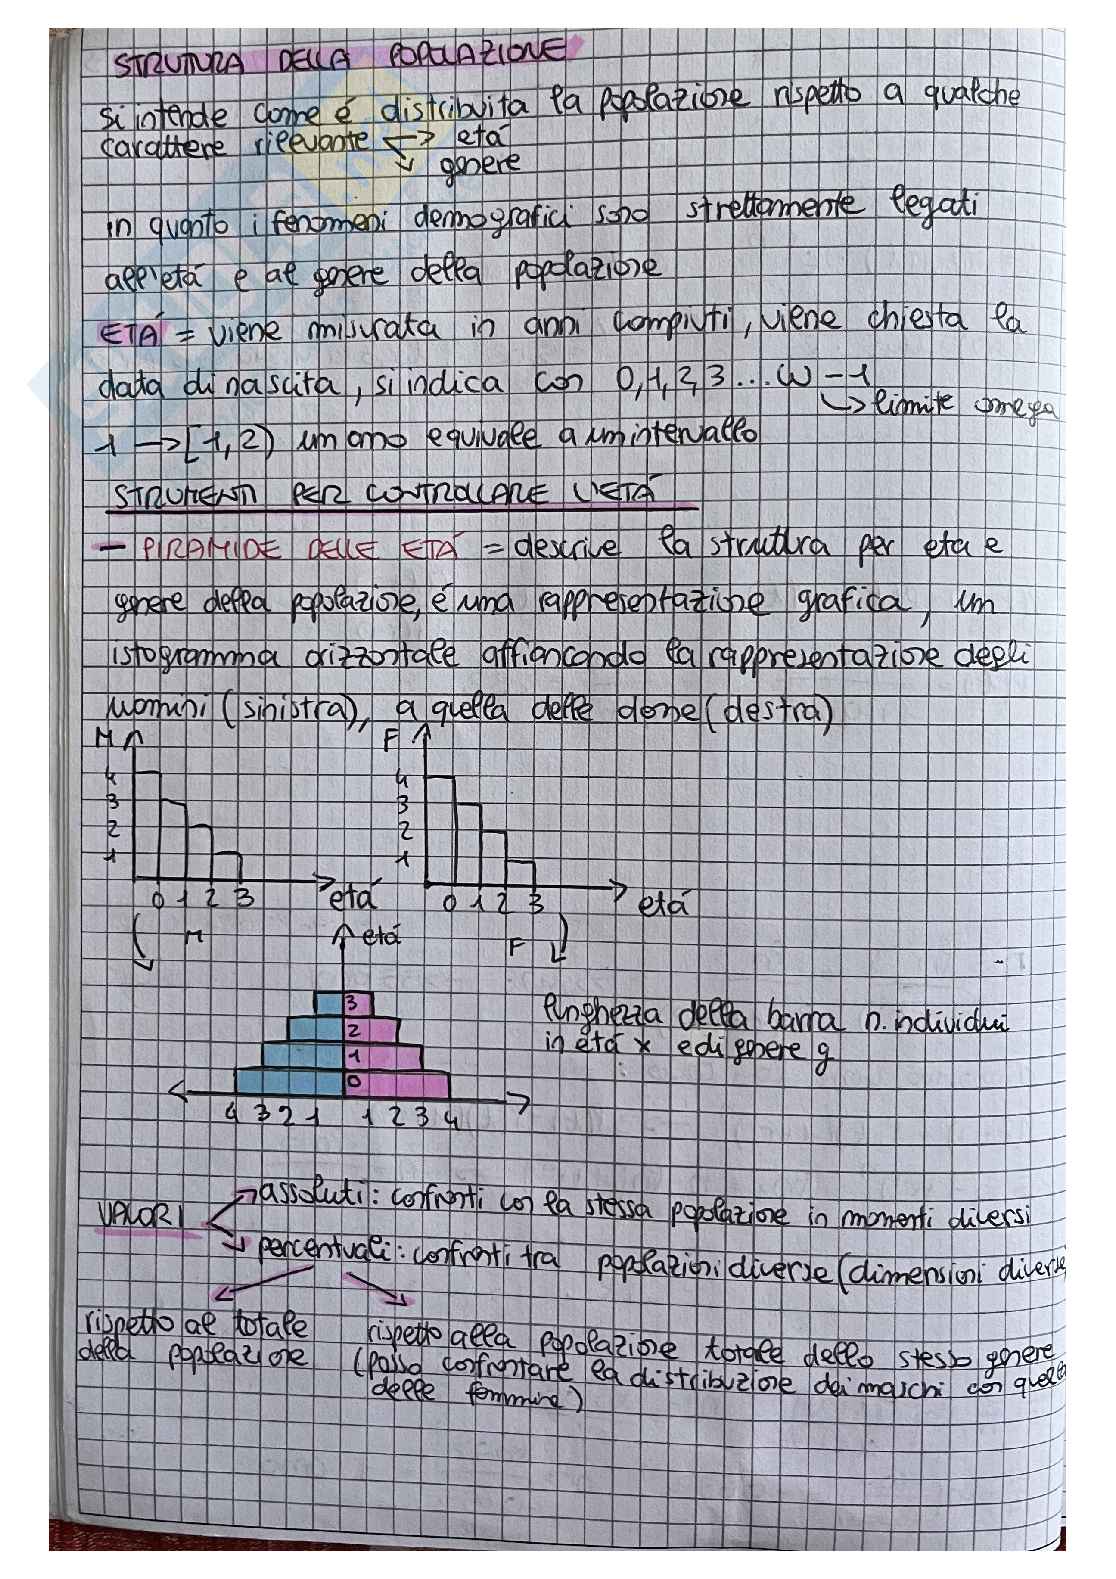 STRUTTURA DELLA POPOLAZIONE
si intende come é distribuita la popolazione rispetto a qualche
carattere rilevante → etá
↘ genere
in quanto i fenomeni demografici sono strettamente legati
all'etá e al genere della popolazione
ETÁ = viene misurata in anni compiuti, viene chiesta la
data di nascita, si indica con 0,1,2,3...ω-1
↳ limite omega
1 → [1,2) un anno equivale a un intervallo
STRUMENTI PER CONTROLLARE L'ETÁ
- PIRAMIDE DELLE ETÁ = descrive la struttura per eta e
genere della popolazione, é una rappresentazione grafica, un
istogramma orizzontale affiancando la rappresentazione degli
uomini (sinistra), a quella delle donne (destra)
M F
4 4
3 3
2 2
1 1
0 1 2 3 etá 0 1 2 3 etá
M etá F
3
2
1
0
lunghezza della barra n. individui
in etá x e di genere g
4 3 2 1 1 2 3 4
VALORI → assoluti: confronti con la stessa popolazione in momenti diversi
↘ percentuali: confronti tra popolazioni diverse (dimensioni diverse
rispetto al totale
della popolazione
rispetto alla popolazione totale dello stesso genere
(posso confrontare la distribuzione dei maschi con quella
delle femmine)